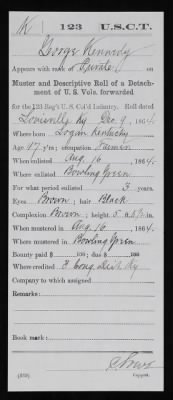 K | 123 | U.S.C.T.
George Kennedy
Appears with rank of Private on
Muster and Descriptive Roll of a Detach-
ment of U. S. Vols. forwarded
for the 123 Reg't U. S. Col'd Infantry. Roll dated
Louisville Ky Dec 9, 1864.
Where born Logan Kentucky
Age 47 y'rs; occupation Farmer
When enlisted Aug 16, 1864.
Where enlisted Bowling Green
For what period enlisted 3 years.
Eyes Brown; hair Black
Complexion Brown; height 5 ft. 5½ in.
When mustered in Aug. 16, 1864.
Where mustered in Bowling Green
Bounty paid $ 100; due $ 100
Where credited 3 Cong. Dist. Ky
Company to which assigned
Remarks:
Book mark:
(339) Copyist.